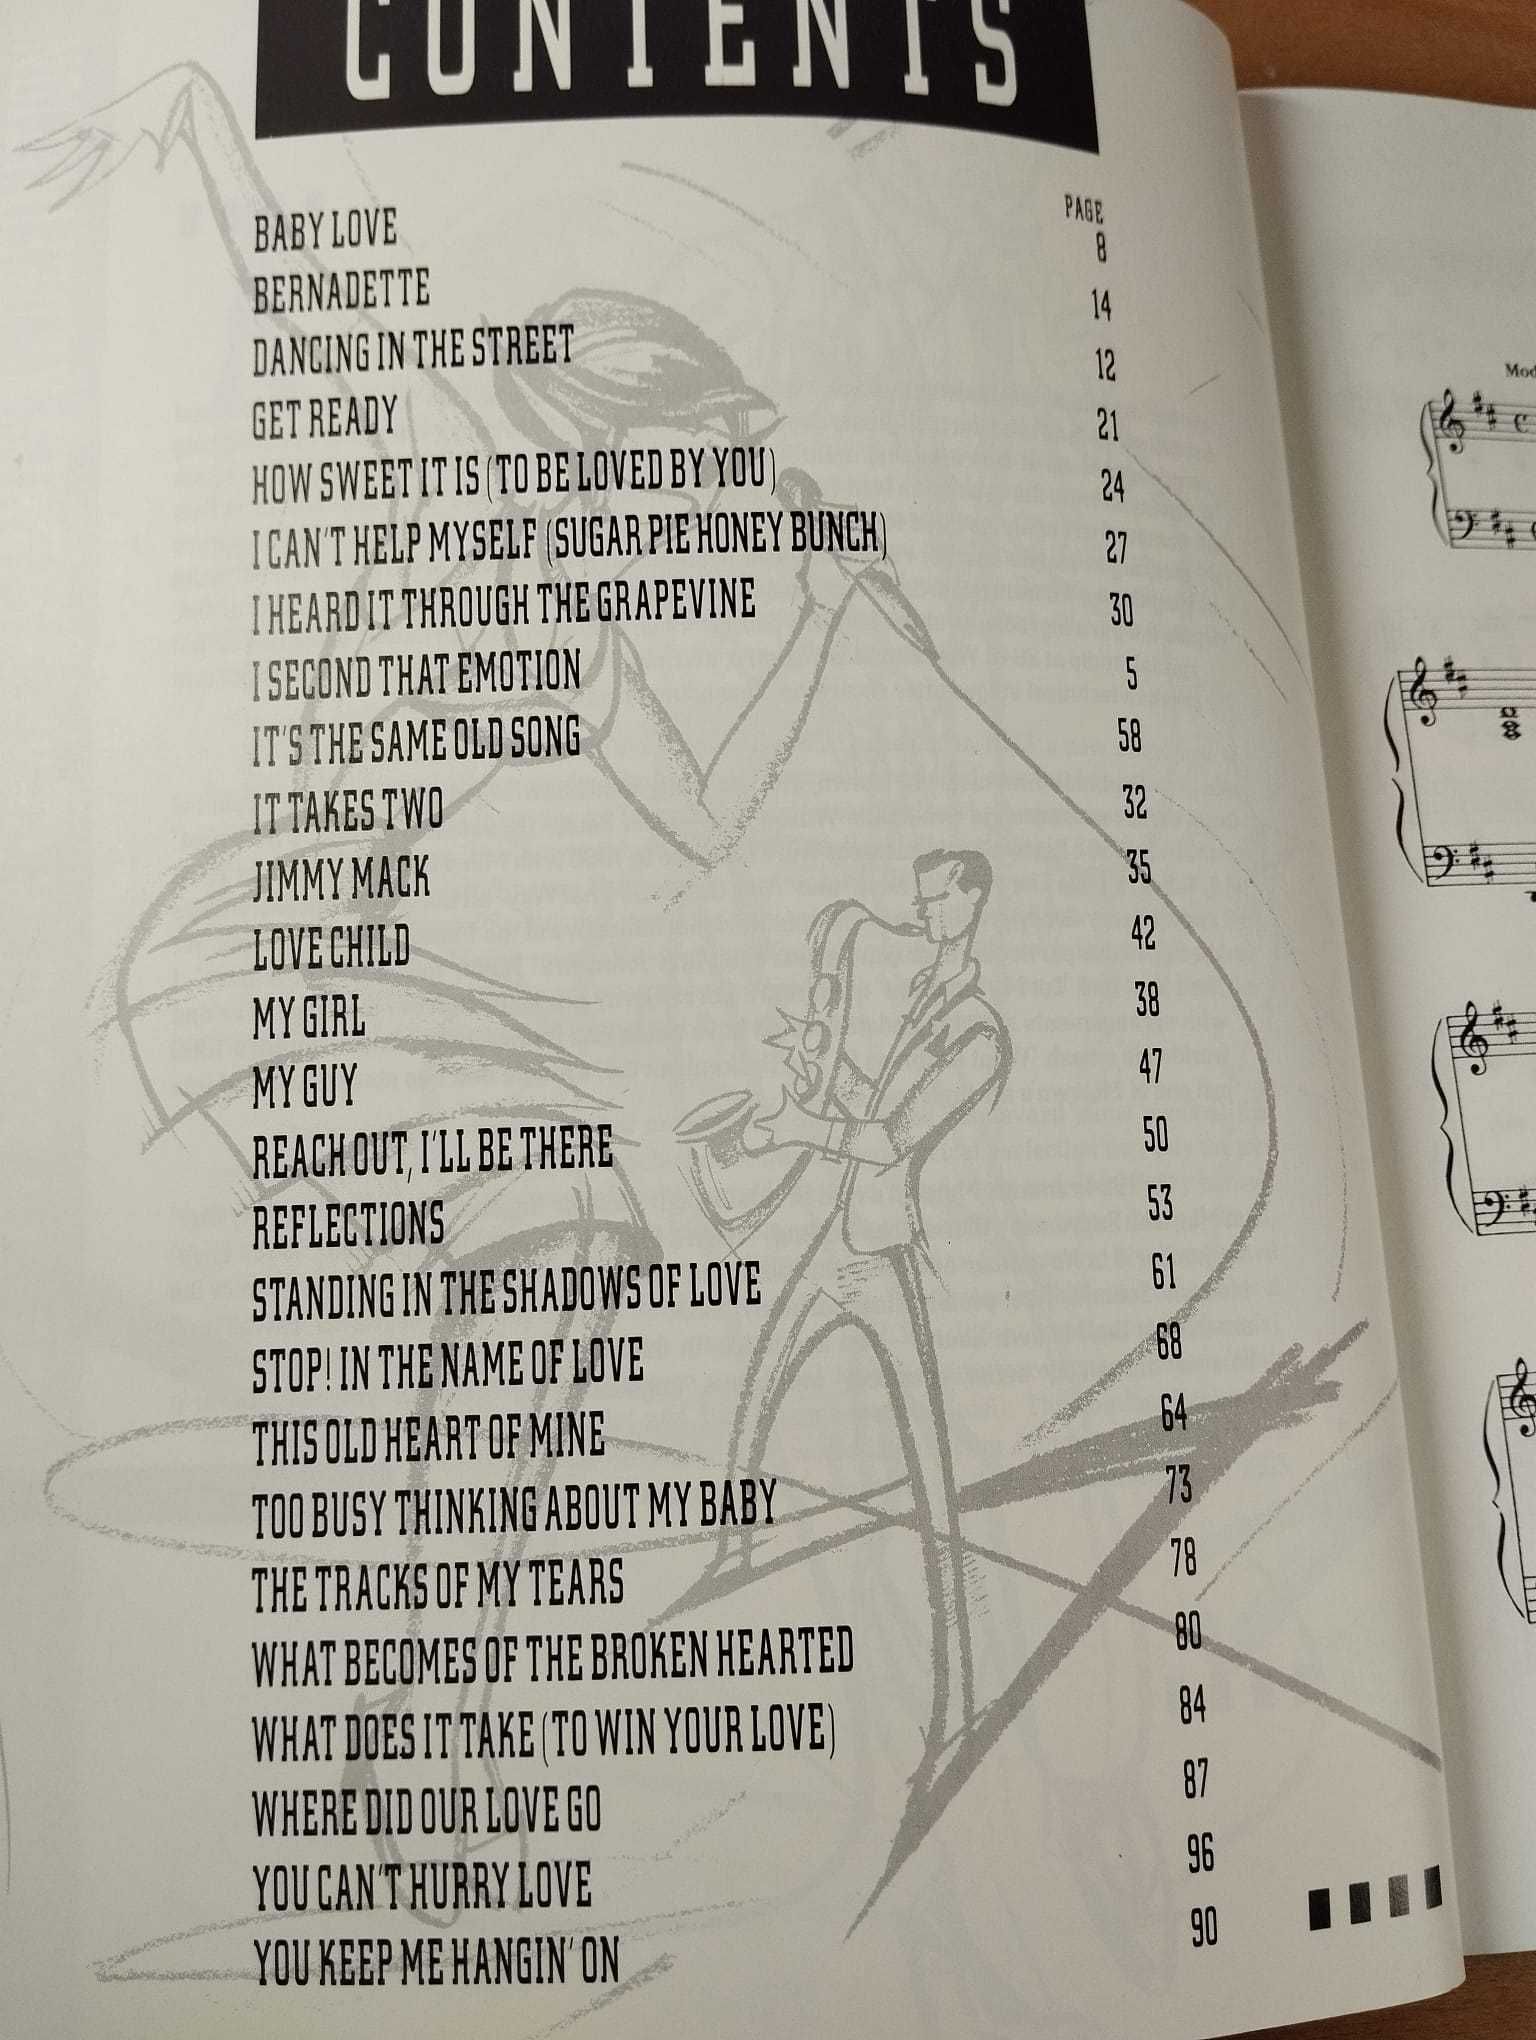 CONTENTS
PAGE
BABY LOVE 8
BERNADETTE 14
DANCING IN THE STREET 12
GET READY 21
HOW SWEET IT IS (TO BE LOVED BY YOU) 24
I CAN'T HELP MYSELF (SUGAR PIE HONEY BUNCH) 27
I HEARD IT THROUGH THE GRAPEVINE 30
I SECOND THAT EMOTION 5
IT'S THE SAME OLD SONG 58
IT TAKES TWO 32
JIMMY MACK 35
LOVE CHILD 42
MY GIRL 38
MY GUY 47
REACH OUT, I'LL BE THERE 50
REFLECTIONS 53
STANDING IN THE SHADOWS OF LOVE 61
STOP! IN THE NAME OF LOVE 68
THIS OLD HEART OF MINE 64
TOO BUSY THINKING ABOUT MY BABY 73
THE TRACKS OF MY TEARS 78
WHAT BECOMES OF THE BROKEN HEARTED 80
WHAT DOES IT TAKE (TO WIN YOUR LOVE) 84
WHERE DID OUR LOVE GO 87
YOU CAN'T HURRY LOVE 96
YOU KEEP ME HANGIN' ON 90
Mod